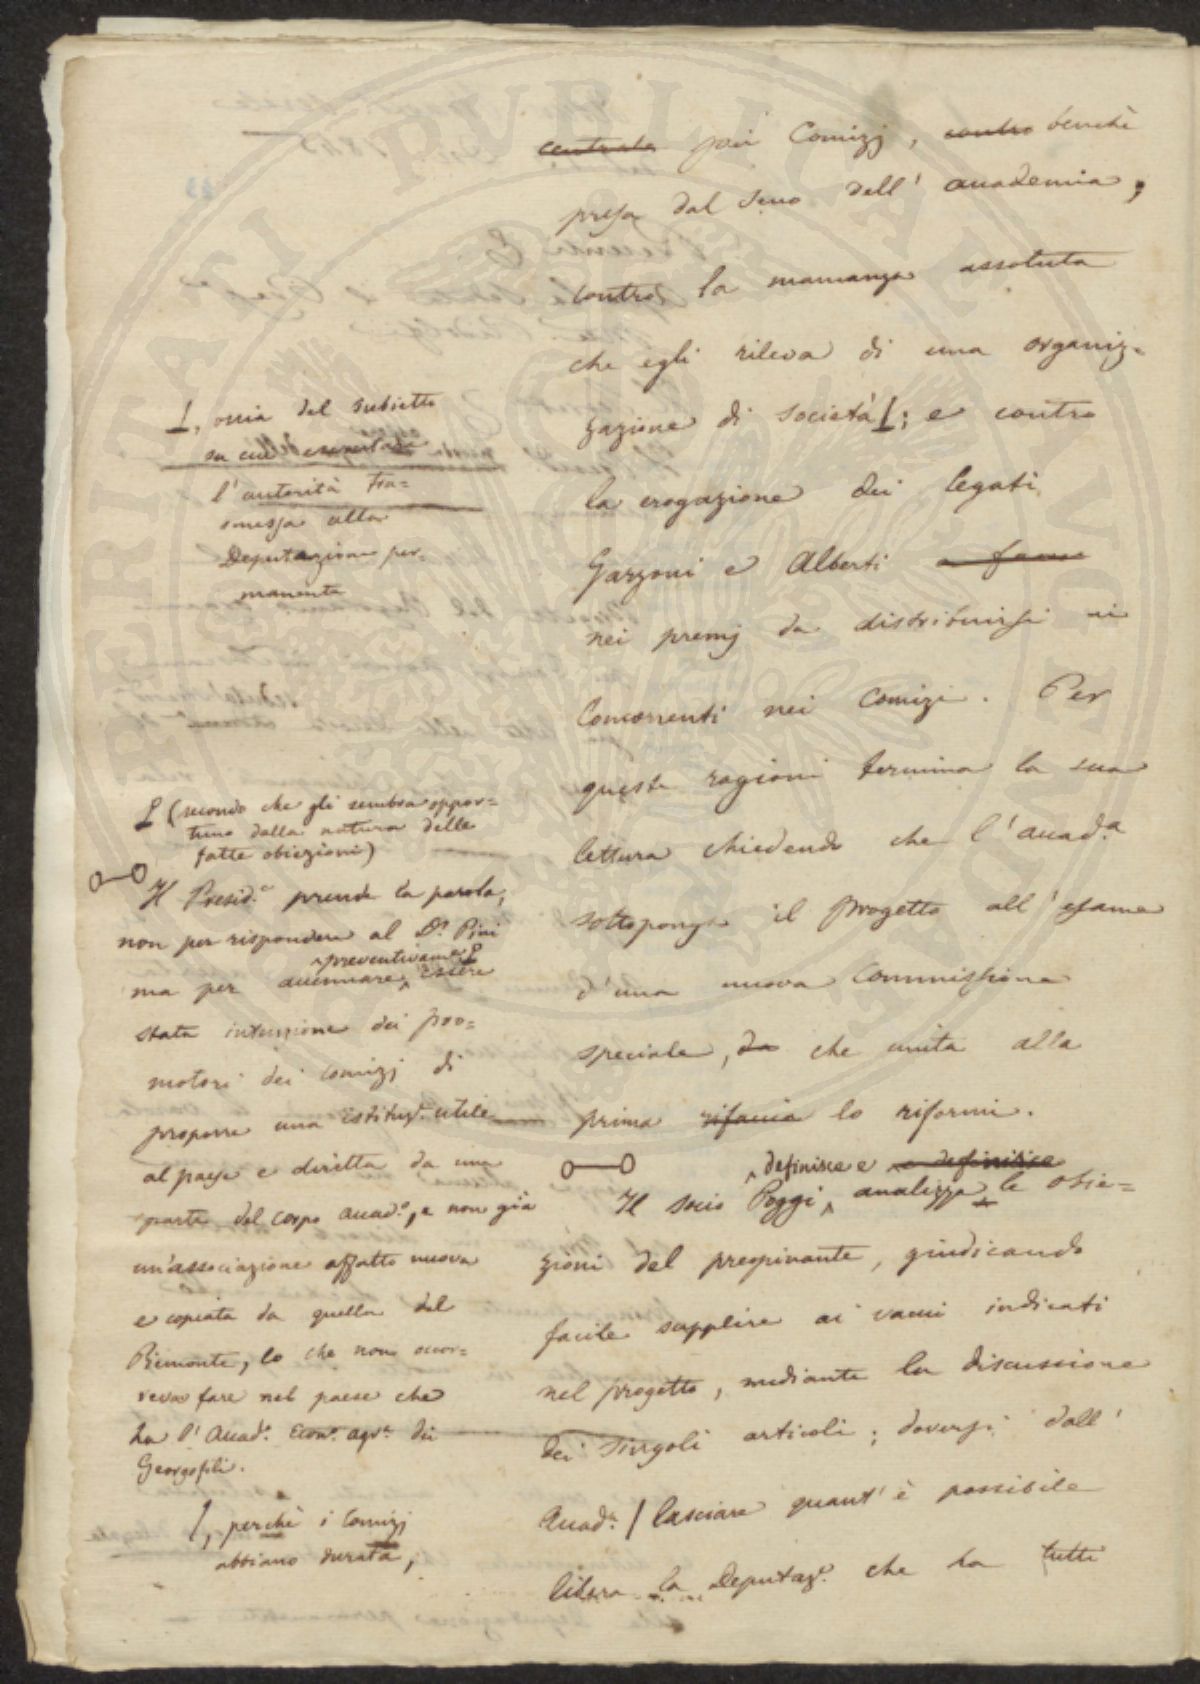 centrale pei Comizj, contro benchè
presa dal seno dell' accademia;
contro la mancanza assoluta
che egli rileva di una organiz=
zazione di società; e contro
la erogazione dei legati
Garzoni e Alberti a farne
nei premj da distribuirsi ai
Concorrenti nei Comizi. Per
queste ragioni termina la sua
lettura chiedendo che l'Accad.a
sottoponga il progetto all'esame
d'una nuova Commissione
speciale, da che unita alla
prima rifaccia lo riformi.
definisce e e definisce
Il socio Poggi, analizza le obie=
zioni del preopinante, giudicando
facile supplire ai vacui indicati
nel progetto, mediante la discussione
dei singoli articoli; doversi dall'
Accad.a / lasciare quant'è possibile
libera la Deputaz.e che ha tutti
, ossia del subietto
su cui
l'autorità tra=
smessa alla
Deputazione per=
manente
(secondo che gli sembra oppor=
tuno dalla natura delle
fatte obiezioni)
Il Presid.e prende la parola,
non per rispondere al D.r Pini
preventivam.e
ma per accennare, essere
stata intenzione dei pro=
motori dei Comizj di
proporre una istituz.e utile
al paese e diretta da una
parte del corpo accad.o, e non già
un'associazione affatto nuova
e copiata da quella del
Piemonte, lo che non occor=
reva fare nel paese che
ha l'Accad.a Econ.o agr.a dei
Georgofili.
/, perchè i Comizj
abbiano durata,